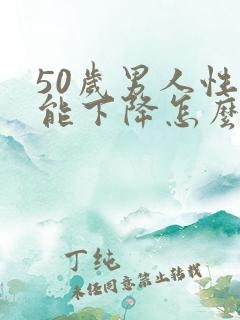 50歲男人性
能下降怎麼
丁纯
未经同意禁止转载